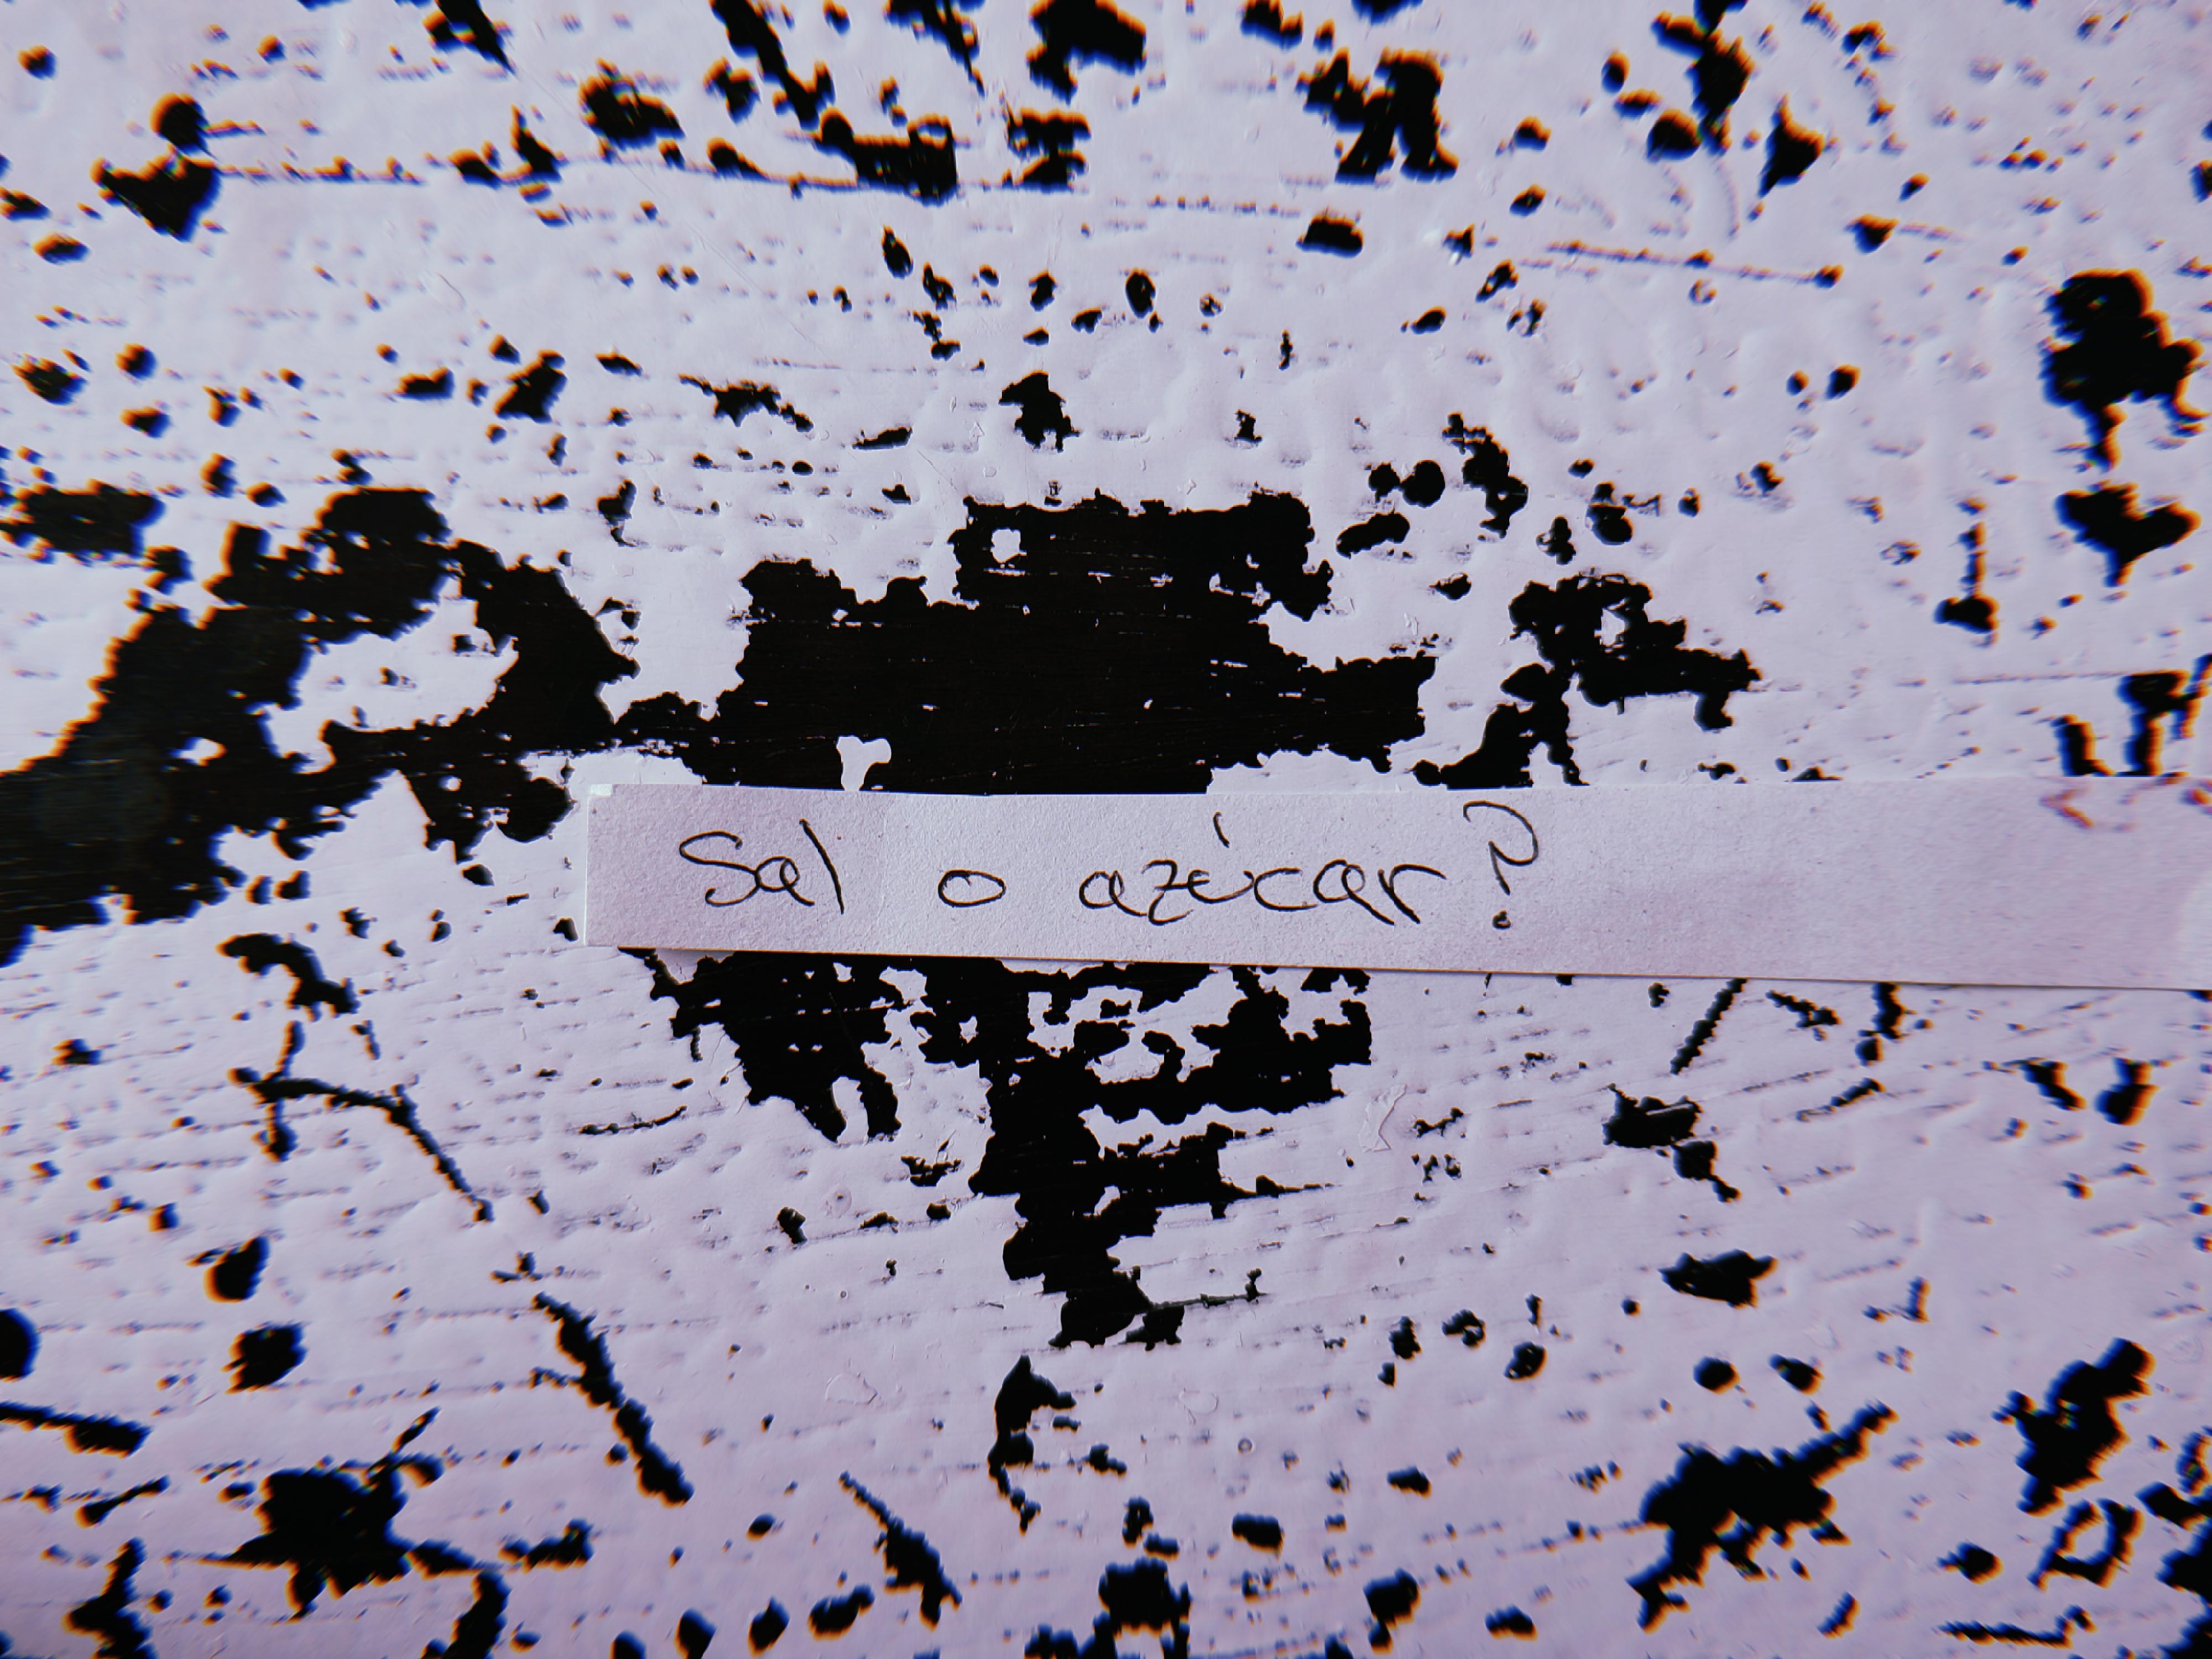 Sal o azúcar?